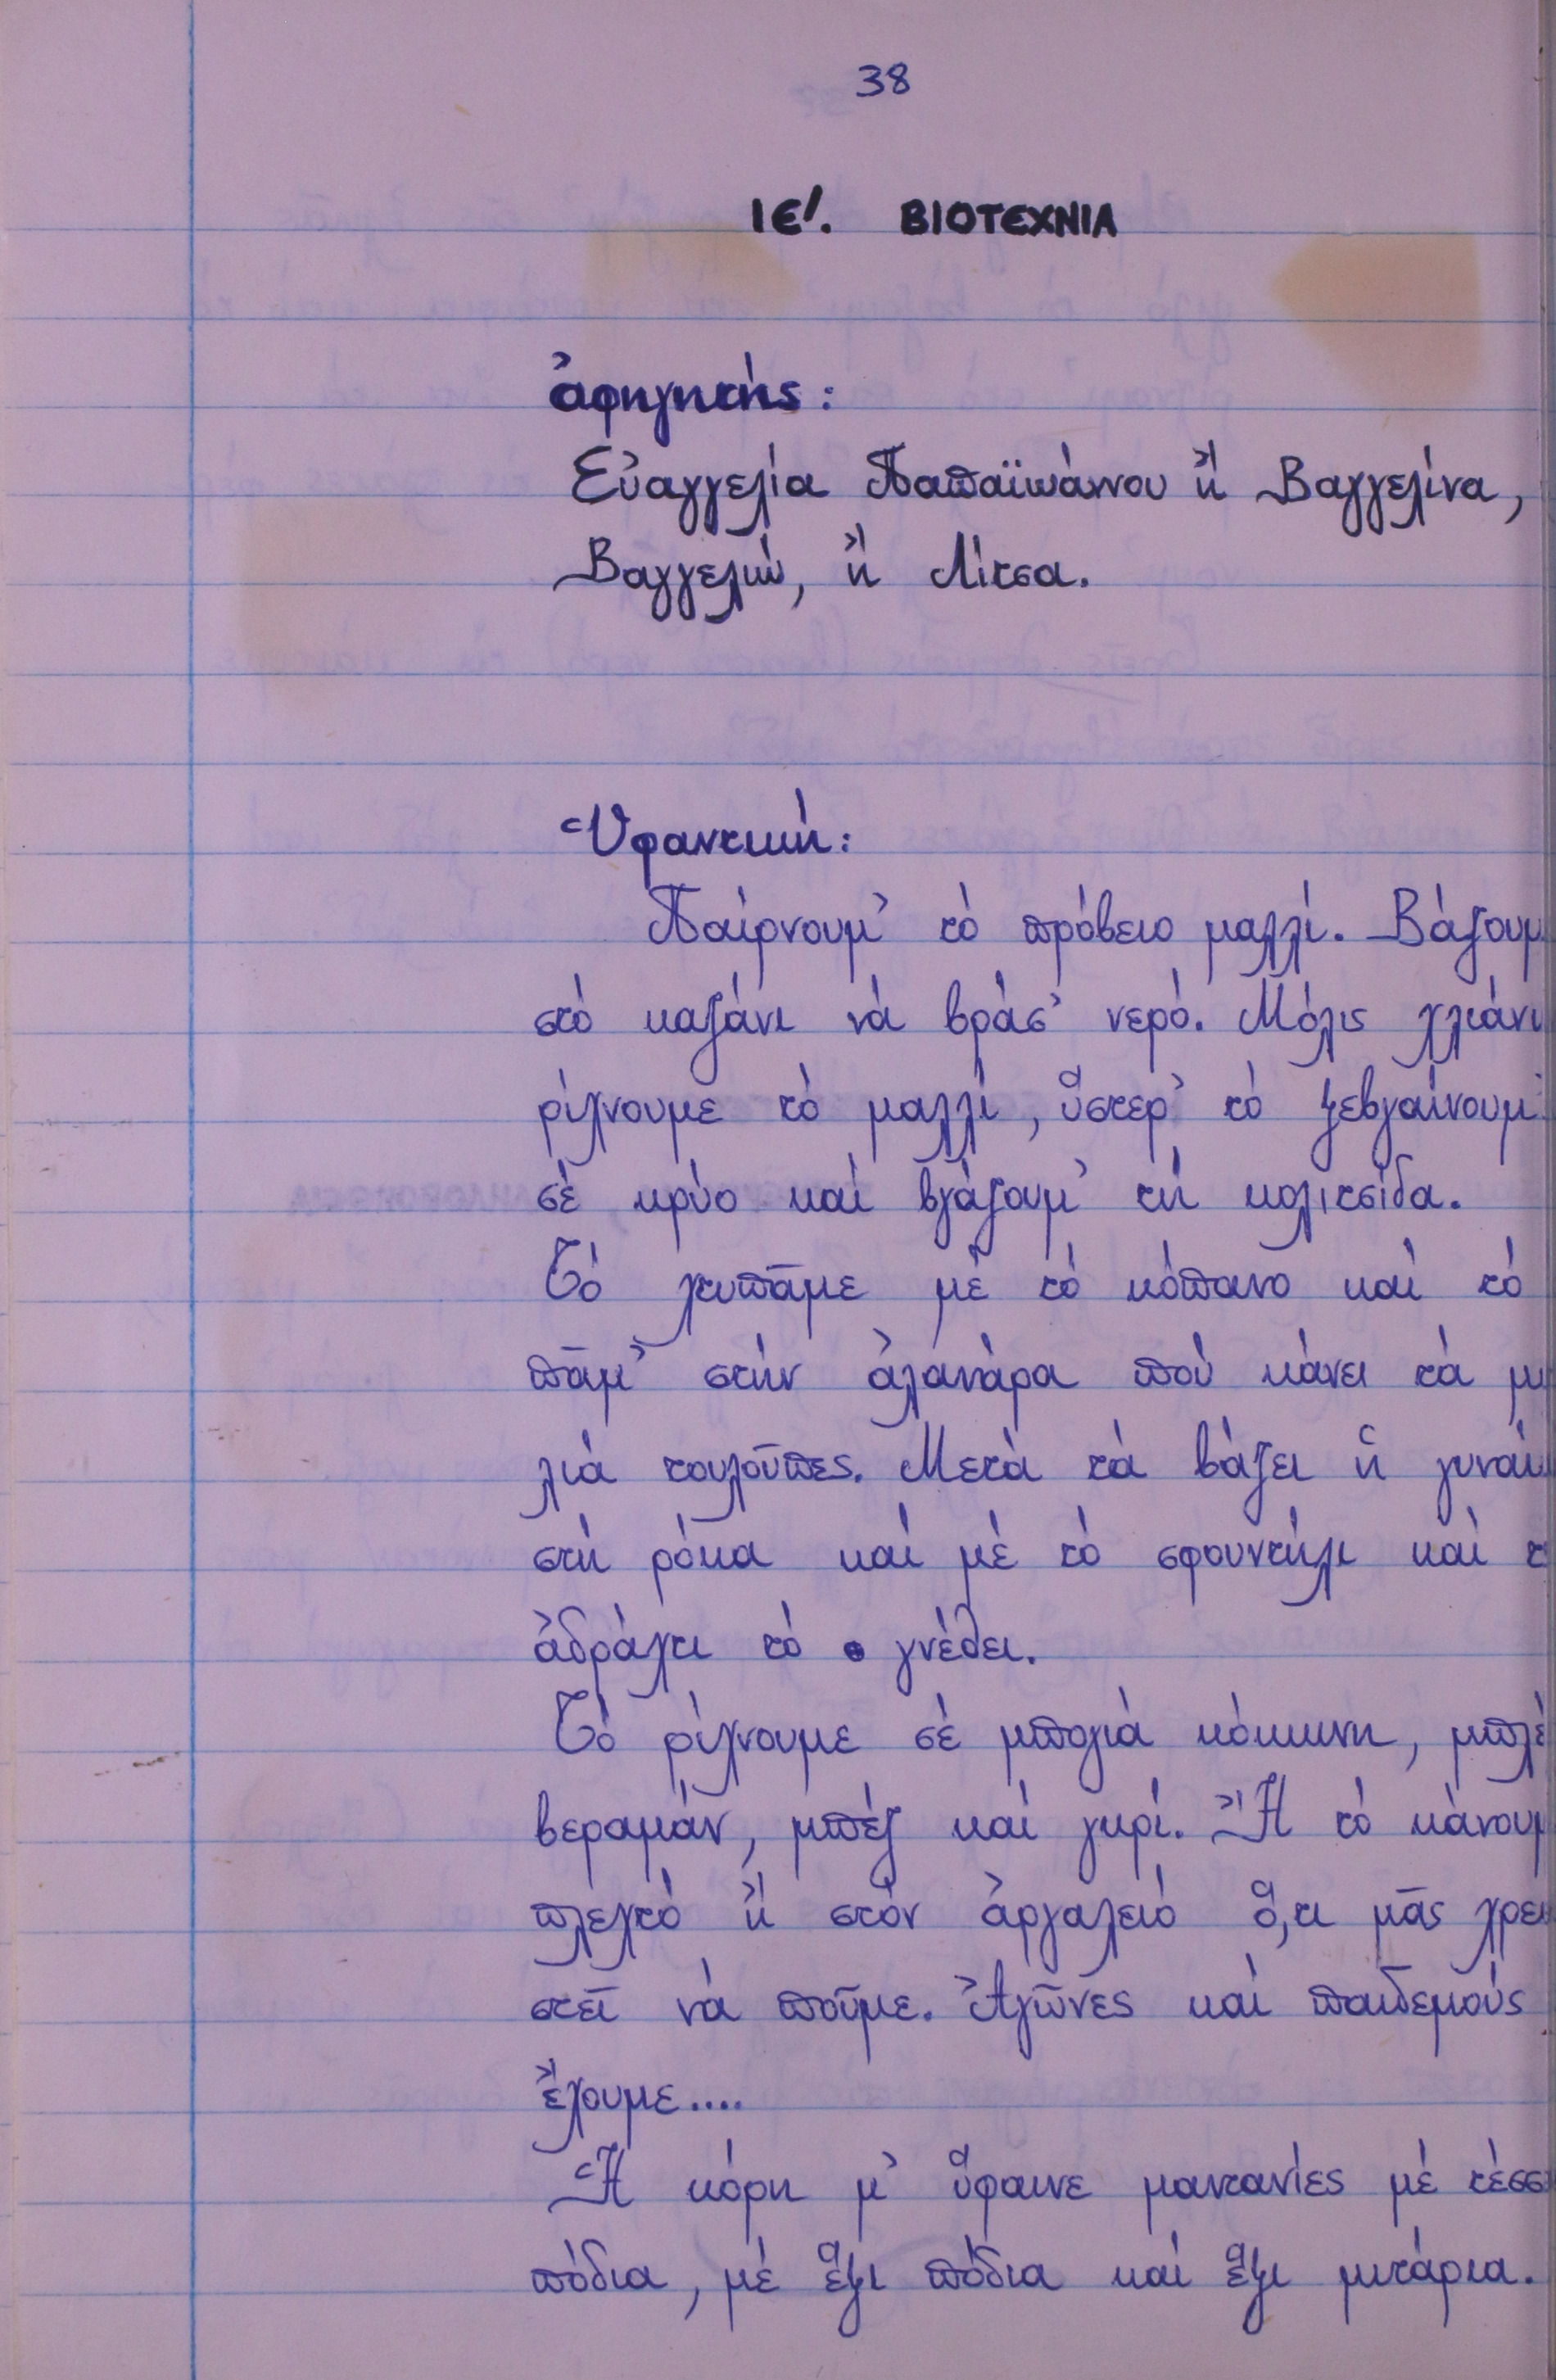 38
ΙΕ'. ΒΙΟΤΕΧΝΙΑ
ἀφηγητής:
Εὐαγγελία Παπαϊωάννου ἤ Βαγγελίνα,
Βαγγελιώ, ἤ Λίτσα.
Ὑφαντική:
Παίρνουμ' τό πρόβειο μαλλί. Βάζουμ
στό καζάνι νά βράσ' νερό. Μόλις χλιάνι
ρίχνουμε τό μαλλί, ὕστερ' τό ξεβγαίνουμ'
σέ κρύο καί βγάζουμ' τή κολιτσίδα.
Τό χτυπᾶμε μέ τό κόπανο καί τό
πᾶμ' στήν ἀλανάρα πού κάνει τά μα
λιά τουλοῦπες. Μετά τά βάζει ἡ γυναίκ
στή ρόκα καί μέ τό σφουντήλι καί τ
ἀδράχτι τό γνέθει.
Τό ρίχνουμε σέ μπογιά κόκκινη, μπλέ
βεραμάν, μπέζ καί γκρί. Ἤ τό κάνουμ
πλεχτό ἤ στόν ἀργαλειό ὅ,τι μᾶς χρει
στεῖ νά ποῦμε. Ἀγῶνες καί παιδεμούς
ἔχουμε....
Ἡ κόρη μ' ὕφαινε μαντανίες μέ τέσσ
πόδια, μέ ἕξι πόδια καί ἕξι μιτάρια.